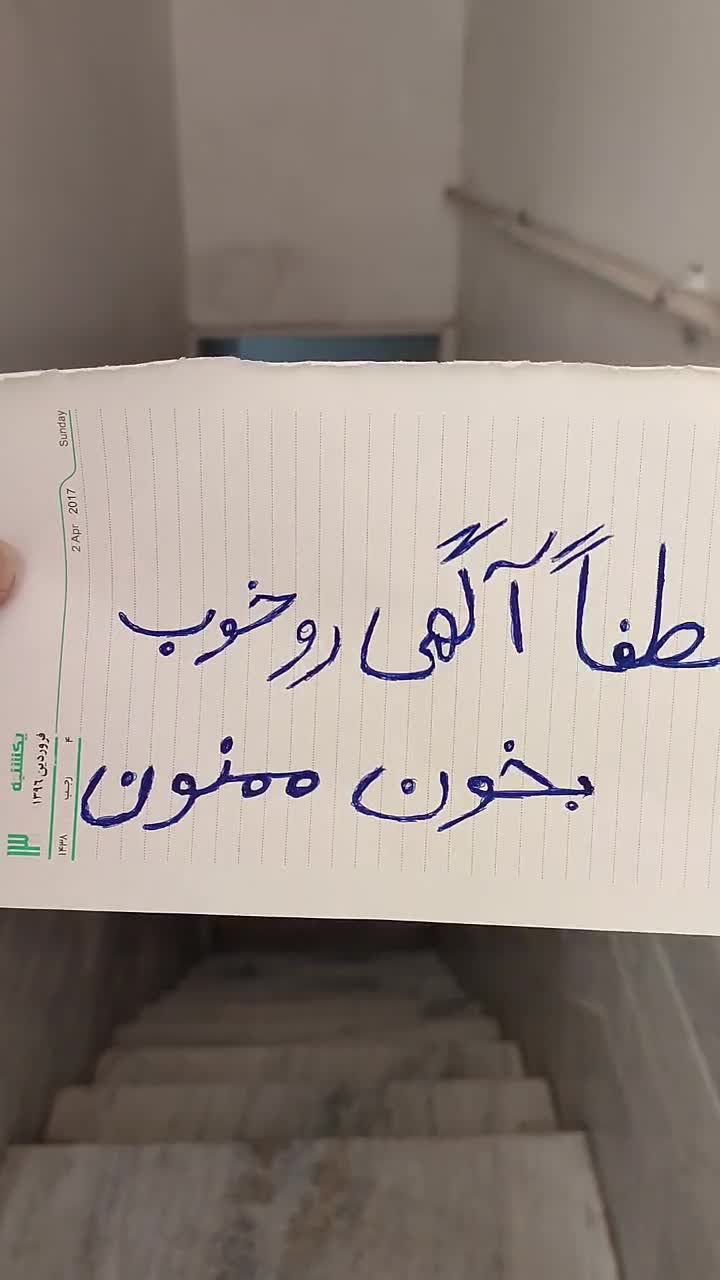 لطفاً آگهی رو خوب
بخون ممنون
Sunday
2 Apr 2017
یکشنبه
۱۳
فروردین ۱۳۹۶
۴ رجب ۱۴۳۸